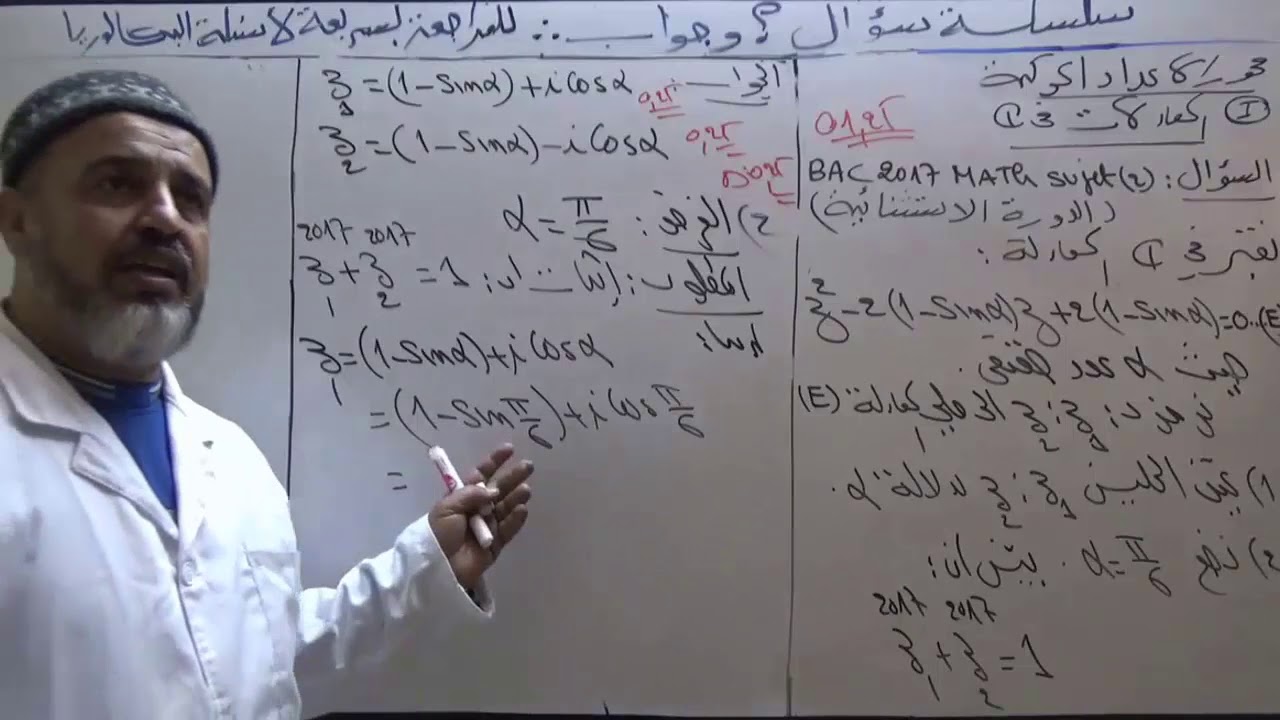 سلسلة سؤال؟ وجواب ∴ للمراجعة لسريعة لأسئلة البكالوريا
محور الأعداد المركبة
I) المعادلات في ℂ
01,25
السؤال: BAC 2017 MATH sujet(2)
(الدورة الاستثنائية)
نعتبر في ℂ المعادلة:
z² - 2(1-Sinα)z + 2(1-Sinα) = 0 ..(E)
حيث α عدد حقيقي.
المعادلة (E)
1) عيّن الحلين z₁ ; z₂ بدلالة α.
2) نضع α = π/6 . بيّن أن:
z₁²⁰¹⁷ + z₂²⁰¹⁷ = 1
الجواب
z₁ = (1-Sinα) + i Cosα 0,25
z₂ = (1-Sinα) - i Cosα 0,25
2) الفرض: α = π/6
المطلوب: إثبات أن: z₁²⁰¹⁷ + z₂²⁰¹⁷ = 1
لدينا:
z₁ = (1-Sinα) + i Cosα
= (1-Sin π/6) + i Cos π/6
=